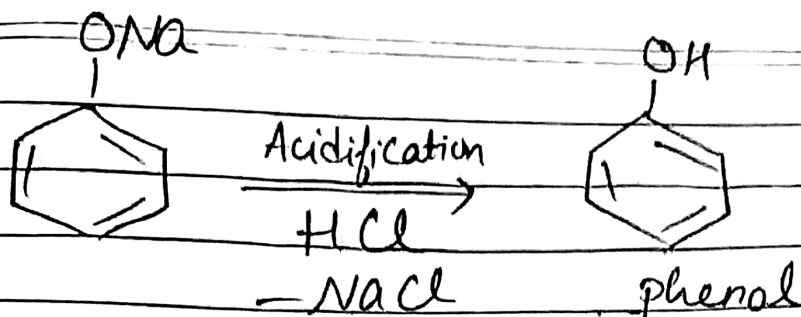 ONa
OH
Acidification
HCl
- NaCl
phenol